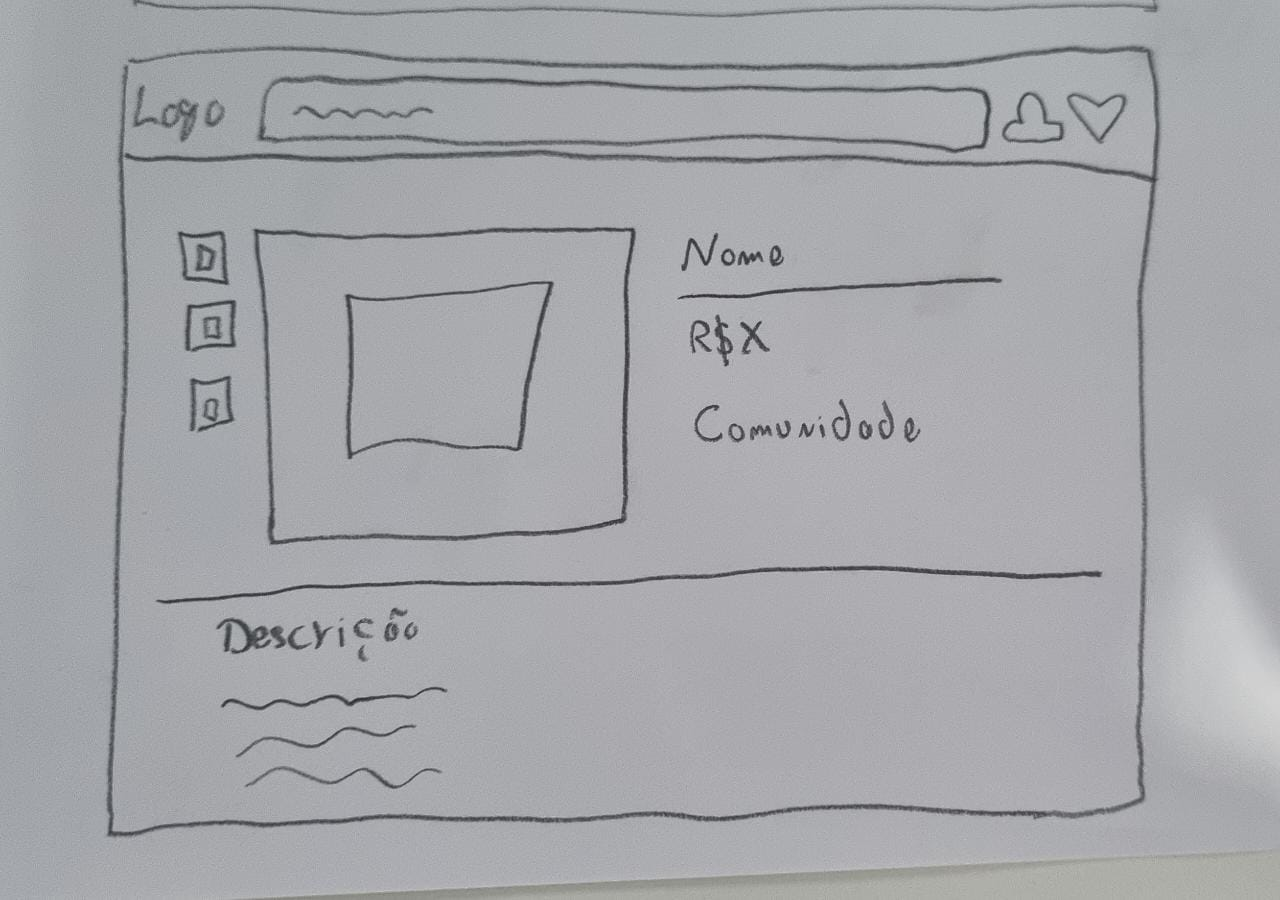 Logo
Nome
R$X
Comunidade
Descrição